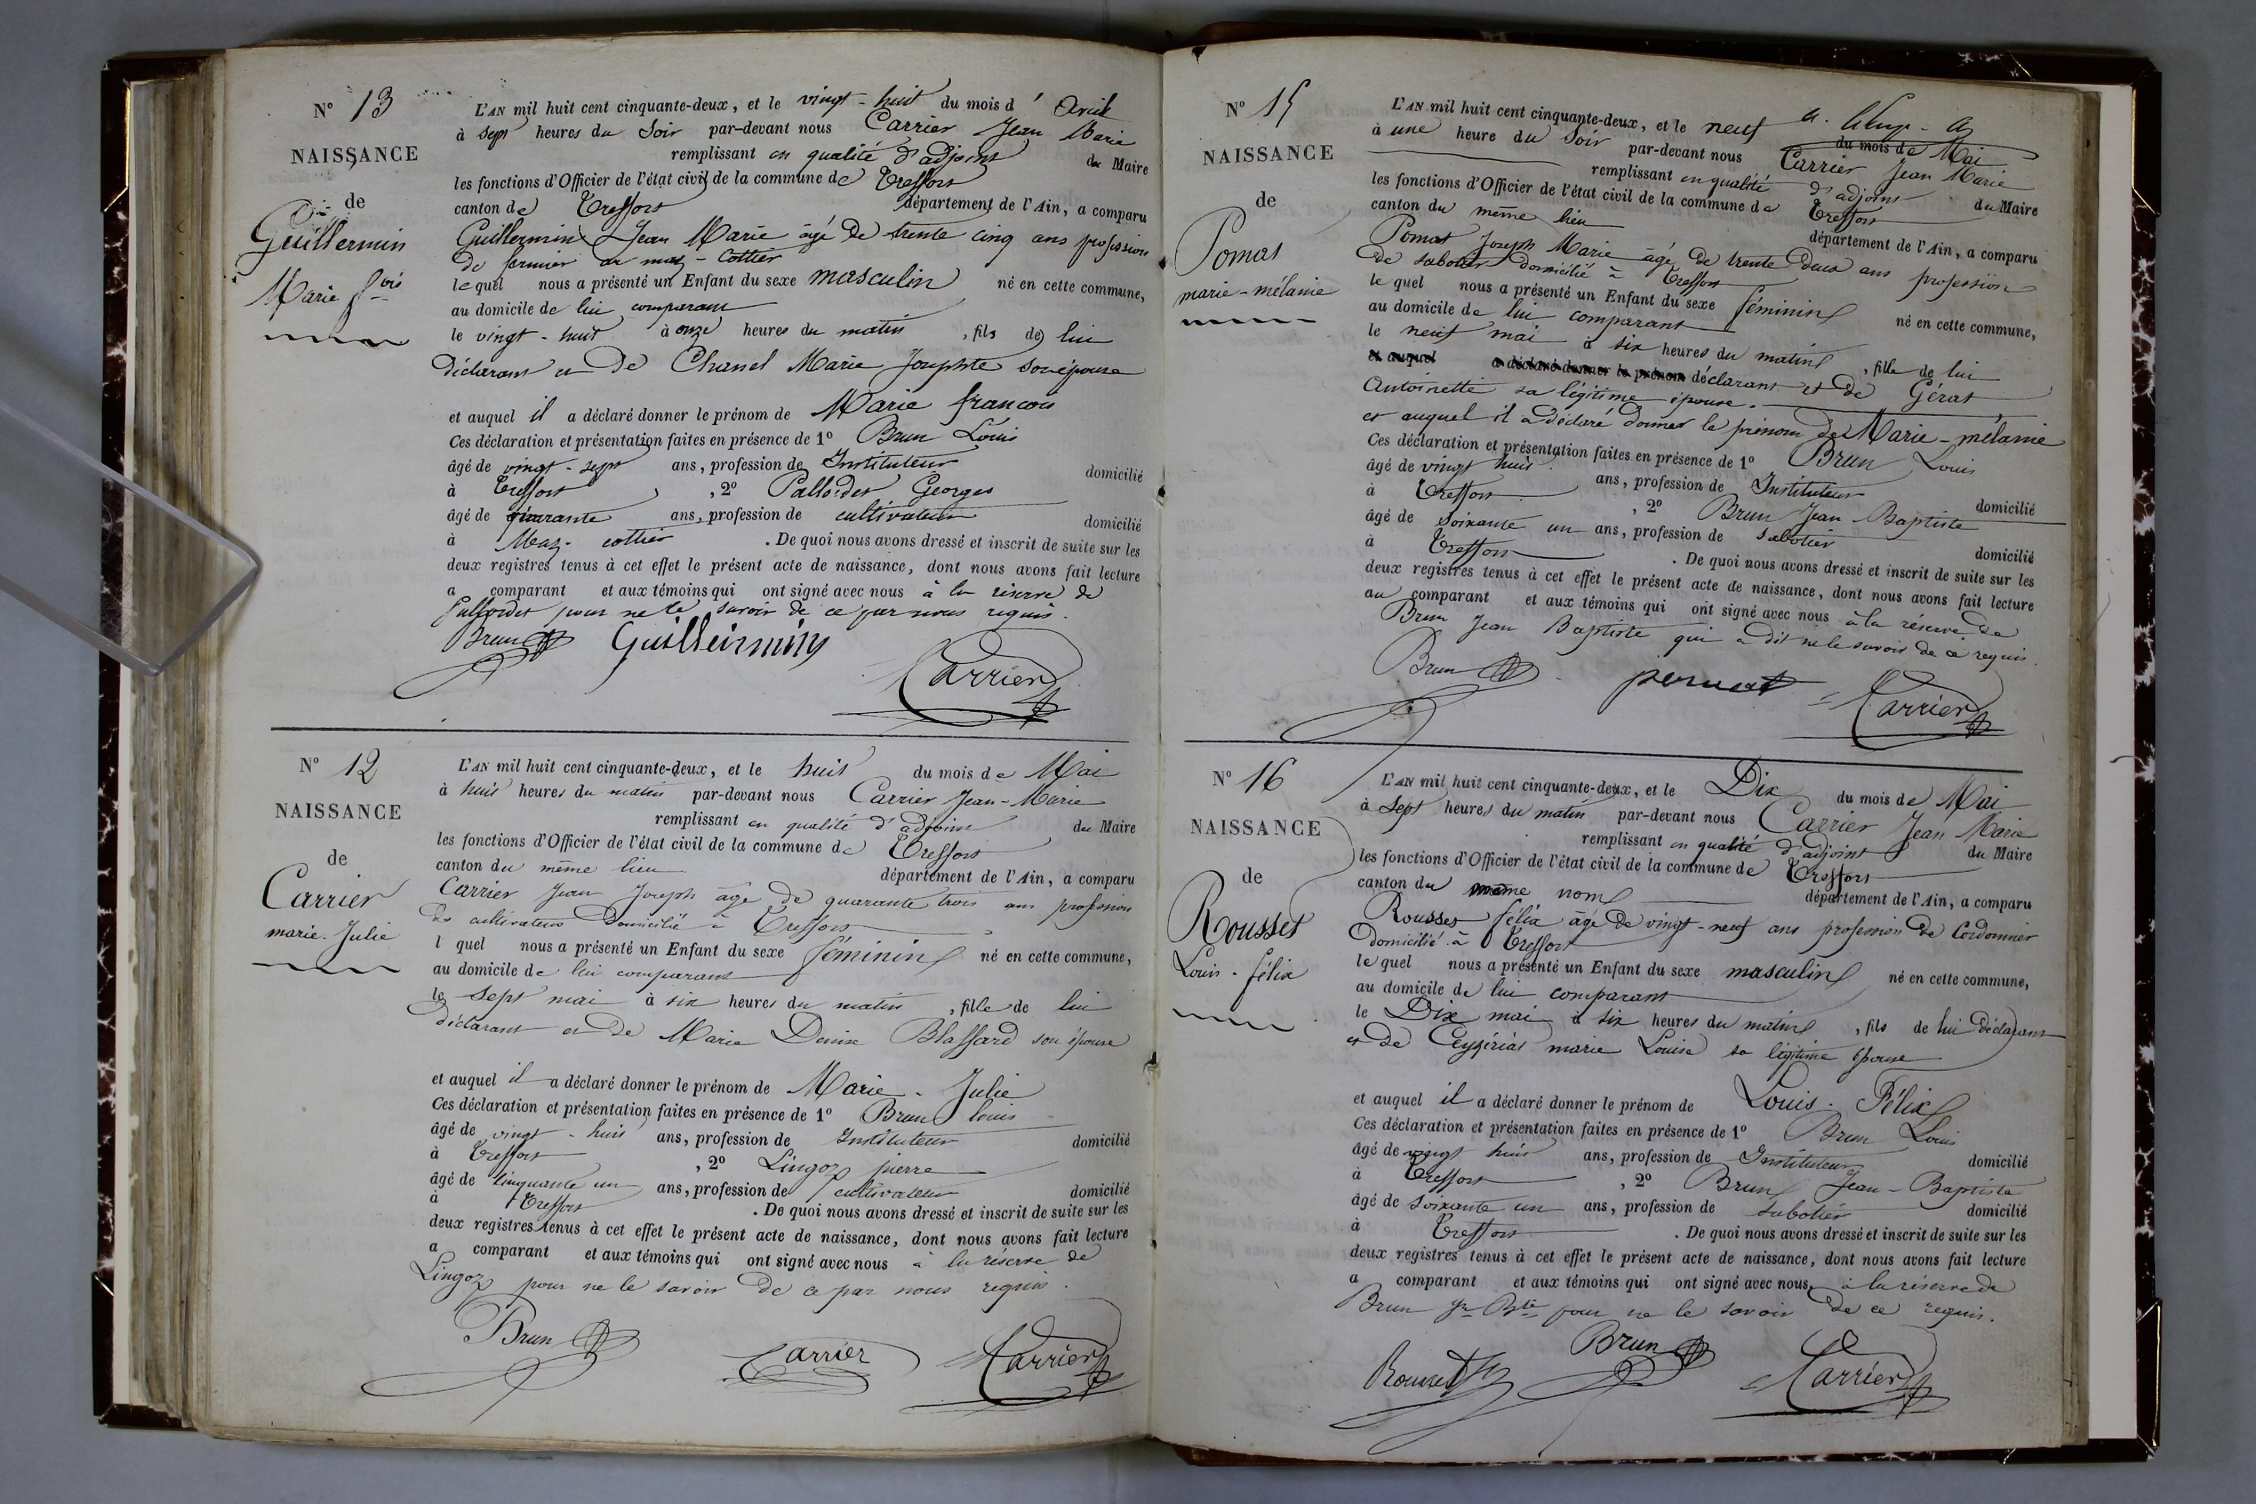 N° 13
NAISSANCE
de
Guillermin
Marie fois
L'AN mil huit cent cinquante-deux, et le vingt-huit du mois d'Avril
à sept heures du Soir par-devant nous Carrier Jean Marie
remplissant en qualité d'adjoint du Maire
les fonctions d'Officier de l'état civil de la commune de Treffort
canton de Treffort département de l'Ain, a comparu
Guillermin Jean Marie âgé de trente cinq ans profession
de fermier au maz-Cottier
lequel nous a présenté un Enfant du sexe masculin né en cette commune,
au domicile de lui comparant
le vingt-huit à onze heures du matin, fils de lui
déclarant et de Chanel Marie Josephte son épouse
et auquel il a déclaré donner le prénom de Marie francois
Ces déclaration et présentation faites en présence de 1° Brun Louis
âgé de vingt-sept ans, profession de Instituteur domicilié
à Treffort, 2° Palfordet Georges
âgé de quarante ans, profession de cultivateur domicilié
à Maz-cottier. De quoi nous avons dressé et inscrit de suite sur les
deux registres tenus à cet effet le présent acte de naissance, dont nous avons fait lecture
a comparant et aux témoins qui ont signé avec nous à la réserve de
pour ne le savoir de ce par nous requis.
Brun Guillermin Carrier
N° 12
NAISSANCE
de
Carrier
marie-Julie
L'AN mil huit cent cinquante-deux, et le huit du mois de Mai
à huit heures du matin par-devant nous Carrier Jean-Marie
remplissant en qualité d'adjoint du Maire
les fonctions d'Officier de l'état civil de la commune de Treffort
canton du même lieu département de l'Ain, a comparu
Carrier Jean Joseph âgé de quarante trois ans profession
de cultivateur domicilié à Treffort
lequel nous a présenté un Enfant du sexe féminin né en cette commune,
au domicile de lui comparant
le sept mai à six heures du matin, fille de lui
déclarant et de Marie Denise Blaffard son épouse
et auquel il a déclaré donner le prénom de Marie-Julie
Ces déclaration et présentation faites en présence de 1° Brun louis
âgé de vingt-huit ans, profession de Instituteur domicilié
à Treffort, 2° Lingoz pierre
âgé de cinquante un ans, profession de cultivateur domicilié
à Treffort. De quoi nous avons dressé et inscrit de suite sur les
deux registres tenus à cet effet le présent acte de naissance, dont nous avons fait lecture
a comparant et aux témoins qui ont signé avec nous à la réserve de
Lingoz pour ne le savoir de ce par nous requis.
Brun Carrier Carrier
N° 15
NAISSANCE
de
Pomat
marie-mélanie
L'AN mil huit cent cinquante-deux, et le neuf du mois de Mai
à une heure du Soir par-devant nous Carrier Jean Marie
remplissant en qualité d'adjoint du Maire
les fonctions d'Officier de l'état civil de la commune de Treffort
canton du même lieu département de l'Ain, a comparu
Pomat Joseph Marie âgé de trente deux ans profession
de sabotier domicilié à Treffort
lequel nous a présenté un Enfant du sexe féminin né en cette commune,
au domicile de lui comparant
le neuf mai à six heures du matin, fille de lui
et auquel a déclaré donner le prénom déclarant et de Gérat
Antoinette sa légitime épouse.
et auquel il a déclaré donner le prénom de Marie-mélanie
Ces déclaration et présentation faites en présence de 1° Brun Louis
âgé de vingt huit ans, profession de Instituteur
à Treffort, 2° Brun Jean-Baptiste domicilié
âgé de soixante un ans, profession de sabotier
à Treffort domicilié. De quoi nous avons dressé et inscrit de suite sur les
deux registres tenus à cet effet le présent acte de naissance, dont nous avons fait lecture
au comparant et aux témoins qui ont signé avec nous à la réserve de
Brun Jean Baptiste qui a dit ne le savoir de ce requis.
Brun Carrier
N° 16
NAISSANCE
de
Rousset
Louis-félix
L'AN mil huit cent cinquante-deux, et le Dix du mois de Mai
à Sept heures du matin par-devant nous Carrier Jean Marie
remplissant en qualité d'adjoint du Maire
les fonctions d'Officier de l'état civil de la commune de Treffort
canton du même nom département de l'Ain, a comparu
Rousset félix âgé de vingt-neuf ans profession de Cordonnier
domicilié à Treffort
lequel nous a présenté un Enfant du sexe masculin né en cette commune,
au domicile de lui comparant
le Dix mai à six heures du matin, fils de lui déclarant
et de Ceyzériat marie Louise sa légitime épouse
et auquel il a déclaré donner le prénom de Louis-Félix
Ces déclaration et présentation faites en présence de 1° Brun Louis
âgé de vingt huit ans, profession de Instituteur domicilié
à Treffort, 2° Brun Jean-Baptiste
âgé de soixante un ans, profession de sabotier domicilié
à Treffort. De quoi nous avons dressé et inscrit de suite sur les
deux registres tenus à cet effet le présent acte de naissance, dont nous avons fait lecture
a comparant et aux témoins qui ont signé avec nous, à la réserve de
Brun Jn Bte pour ne le savoir de ce requis.
Rousset Brun Carrier